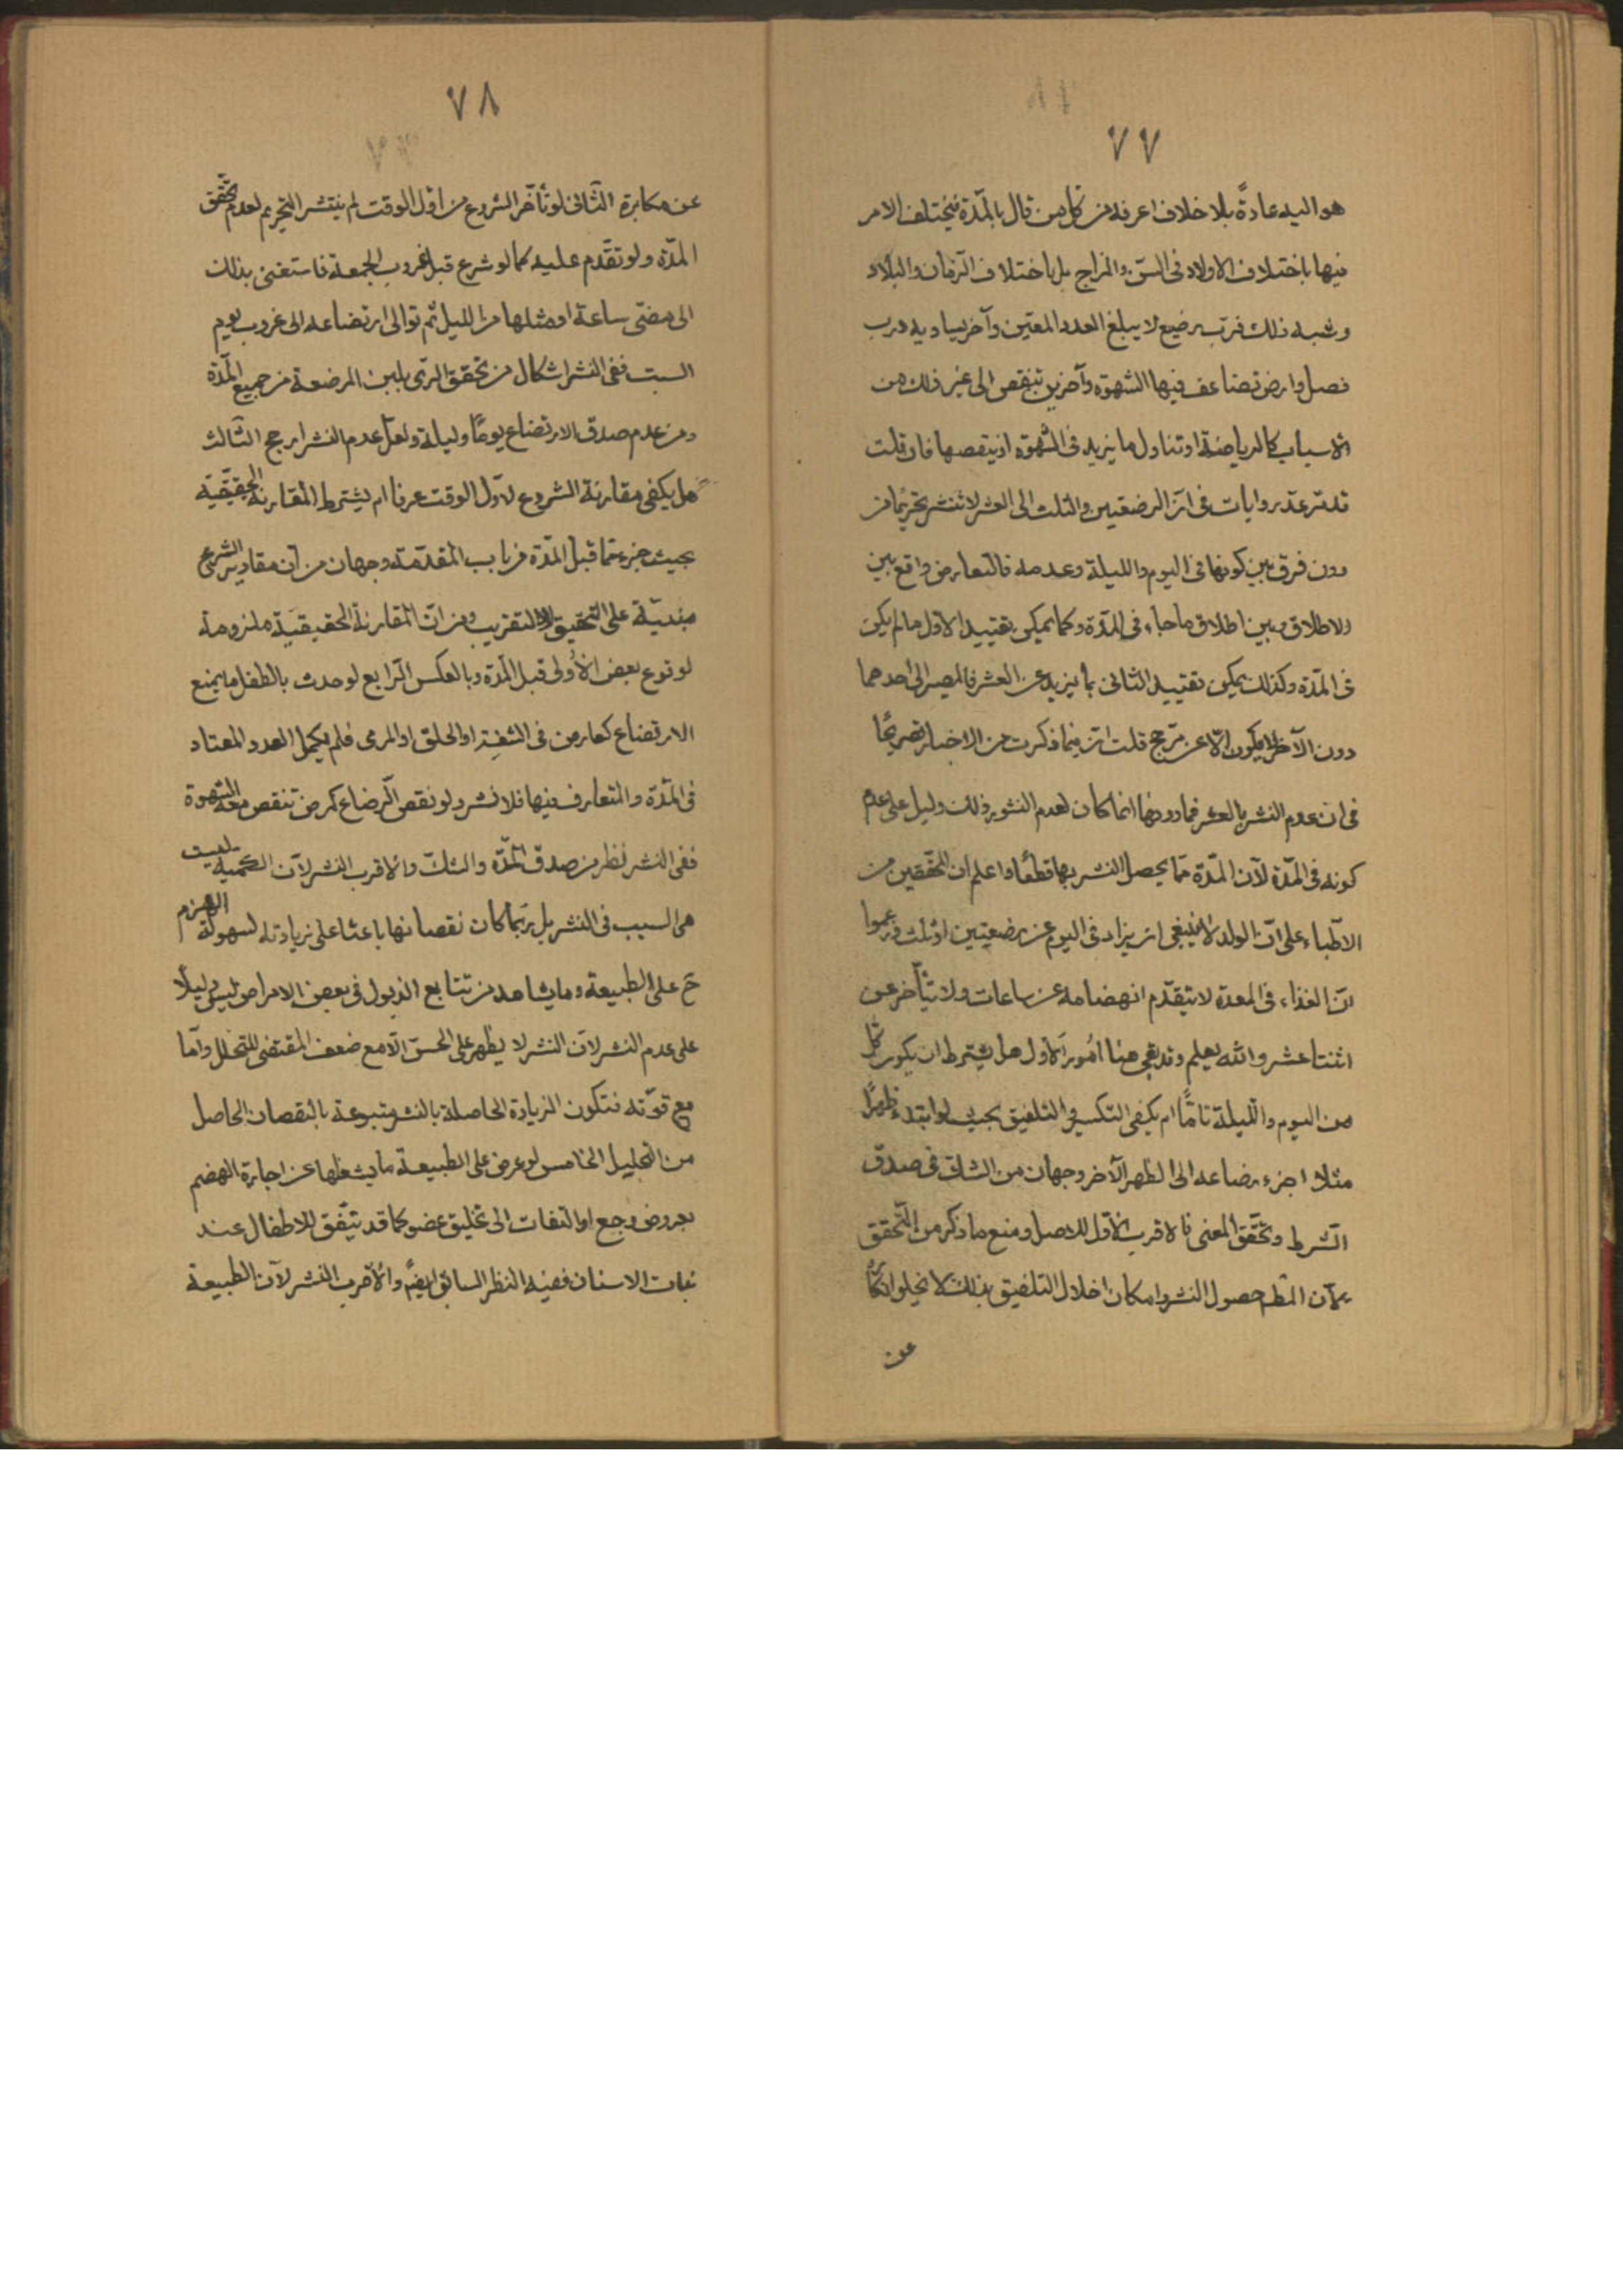 ٧٧
هو اليه عادةً بلا خلاف اعرفه من كل من قال بالمدّة فيختلف الامر
فيها باختلاف الاولاد فى السنّ والمزاج بل باختلاف الزمان والبلاد
وشبه ذلك فربّ رضيع لا يبلغ العدد المعيّن وآخر يساويه ورب
فصل وارض تضاعف فيها الشهوة وآخرين تنقص الى غير ذلك من
الاسباب كالرياضة او تناول ما يزيد فى الشهوة او ينقصها فان قلت
قد مر عدّة روايات فى ان الرضعتين والثلث الى العشر لا تنشر تحريمًا من
دون فرق بين كونها فى اليوم والليلة وعدمه فالتعارض واقع بين
الاطلاق وبين اطلاق ما جاء فى المدّة وكما يمكن تقييد الاول بما لم يكن
فى المدّة وكذلك يمكن تقييد الثانى بما يزيد عن العشر فالمصير الى احدهما
دون الآخر لا يكون الّا عن مرّجح قلت ان فيما ذكرت من الاخبار تصريحًا
فى ان عدم النشر بالعشر فما دونها انما كان لعدم النشو وذلك دليل على عدم
كونه فى المدّة لانّ المدّة ممّا يحصل النشر بها قطعًا واعلم ان المحققين من
الاطباء على انّ الولد لا ينبغى ان يزاد فى اليوم عن رضعتين او ثلث وزعموا
انّ الغذاء فى المعدة لا يتقدّم انهضامه عن ساعات ولا يتأخر عن
اثنتا عشر والله يعلم وقد بقى هنا امُور الاول هل يشترط ان يكون كلّ
من اليوم والليلة تامًّا ام يكفى التكسير والتلفيق بحيث لو ابتدء ظهرًا
مثلا اجزء رضاعه الى الظهر الآخر وجهان من الشك فى صدق
الشرط وتحقّق المعنى فالاقرب الاول للاصل ومنع ما ذكر من التّحقق
لانّ المظم حصول النشر وامكان اخلال التلفيق بذلك لا يخلو انكاره
عن
٧٨
عن مكابرة الثّانى لو تأخّر الشروع من اوّل الوقت لم ينتشر التحريم لعدم تحقّق
المدّة ولو تقدّم عليه كما لو شرع قبل غروب الجمعة فاستغنى بذلك
الى مضىّ ساعة او مثلها من الليل ثم توالى ارتضاعه الى غروب يوم
السبت ففى النشر اشكال من تحقق الرىّ بلبن المرضعة من جميع المدّة
ومن عدم صدق الارتضاع يومًا وليلة ولعلّ عدم النشر ارجح الثّالث
هل يكفى مقارنة الشروع لاوّل الوقت عرفا ام يشترط المقارنة الحقيقيّة
بحيث جزء ممّا قبل المدّة من باب المقدّمة وجهان من ان مقادير الشرع
مبنيّة على التحقيق لا التقريب ومن انّ المقارنة الحقيقيّة ملزومة
لوقوع بعض الأولى قبل المدّة وبالعكس الرابع لو حدث بالطفل ما يمنع
الارتضاع كعارض فى الشفة او الحلق او المرى فلم يكمل العدد المعتاد
فى المدّة والمتعارف فيها فلا نشر ولو نقص الرضاع كمرض تنقص معه الشهوة
ففى النشر نظر من صدق المدّة والشكّ والاقرب النشر لانّ الكميّة ليست
هى السبب فى النشر بل ربّما كان نقصانها باعثا على زيادته لسهولة الهضم
ح على الطبيعة وما يشاهد من تتابع الذبول فى بعض الامراض ليس دليلًا
على عدم النشر لانّ النشر لا يظهر على الحسّ الّا مع ضعف المقتضى للتحلل وامّا
مع قوّته فتكون الزيادة الحاصلة بالنشر متبوعة بالنقصان الحاصل
من التحليل الخامس لو عرض على الطبيعة ما يشغلها عن اجارة الهضم
بعروض وجع او التفات الى تخليق عضو كما قد يتّفق للاطفال عند
نبات الاسنان ففيه النظر السابق ايضًا والاقرب النشر لانّ الطبيعة